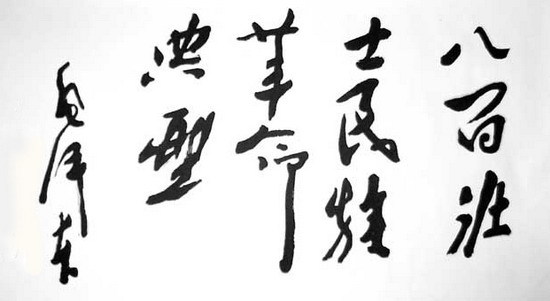 八百壮
士民族
革命
典型
毛泽东